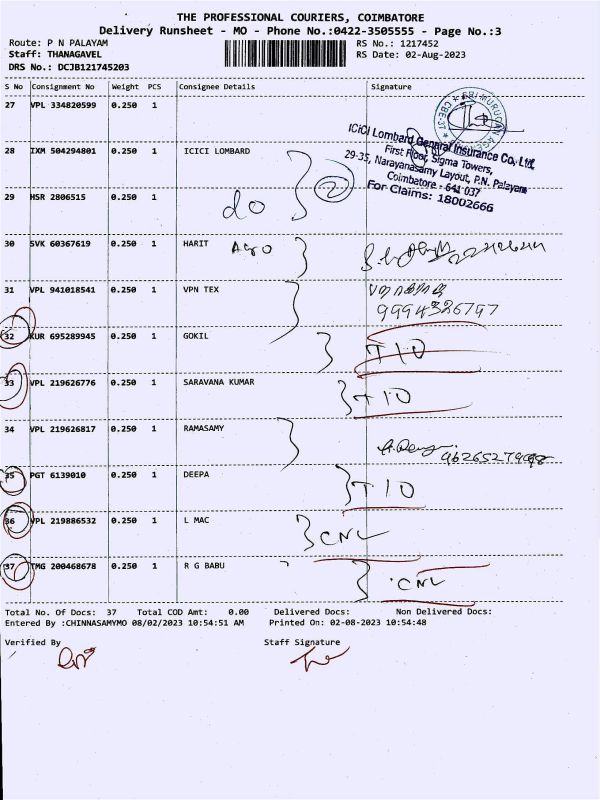 THE PROFESSIONAL COURIERS, COIMBATORE
Delivery Runsheet - MO - Phone No.:0422-3505555 - Page No.:3
Route: P N PALAYAM RS No.: 1217452
Staff: THANAGAVEL RS Date: 02-Aug-2023
DRS No.: DCJB121745203
S No Consignment No Weight PCS Consignee Details Signature
27 VPL 334820599 0.250 1
ICICI Lombard General Insurance Co. Ltd.
First Floor, Sigma Towers,
29-35, Narayanasamy Layout, P.N. Palayam
Coimbatore - 641 037
For Claims: 18002666
28 IXM 504294801 0.250 1 ICICI LOMBARD
2
29 HSR 2806515 0.250 1 do
30 SVK 60367619 0.250 1 HARIT Agro
31 VPL 941018541 0.250 1 VPN TEX
9994326797
32 KUR 695289945 0.250 1 GOKIL TIO
33 VPL 219626776 0.250 1 SARAVANA KUMAR TIO
34 VPL 219626817 0.250 1 RAMASAMY
35 PGT 6139010 0.250 1 DEEPA TIO
36 VPL 219886532 0.250 1 L MAC CNL
37 TMG 200468678 0.250 1 R G BABU CNL
Total No. Of Docs: 37 Total COD Amt: 0.00 Delivered Docs: Non Delivered Docs:
Entered By :CHINNASAMYMO 08/02/2023 10:54:51 AM Printed On: 02-08-2023 10:54:48
Verified By Staff Signature